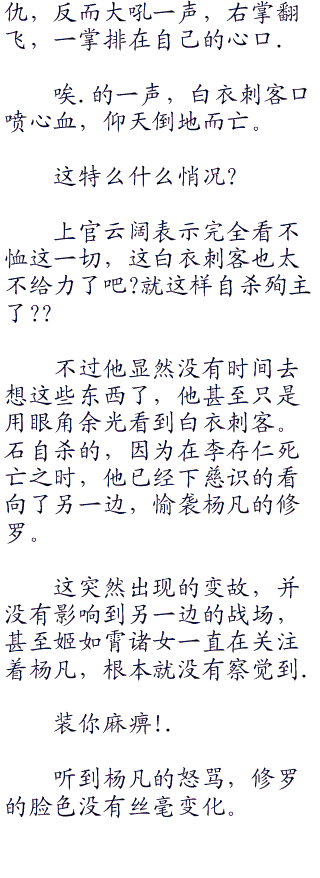 仇，反而大吼一声，右掌翻
飞，一掌排在自己的心口.
唉.的一声，白衣刺客口
喷心血，仰天倒地而亡。
这特么什么悄况?
上官云阔表示完全看不
恤这一切，这白衣刺客也太
不给力了吧?就这样自杀殉主
了??
不过他显然没有时间去
想这些东西了，他甚至只是
用眼角余光看到白衣刺客。
石自杀的，因为在李存仁死
亡之时，他已经下慈识的看
向了另一边，愉袭杨凡的修
罗。
这突然出现的变故，并
没有影响到另一边的战场，
甚至姬如霄诸女一直在关注
着杨凡，根本就没有察觉到.
装你麻痹!.
听到杨凡的怒骂，修罗
的脸色没有丝毫变化。